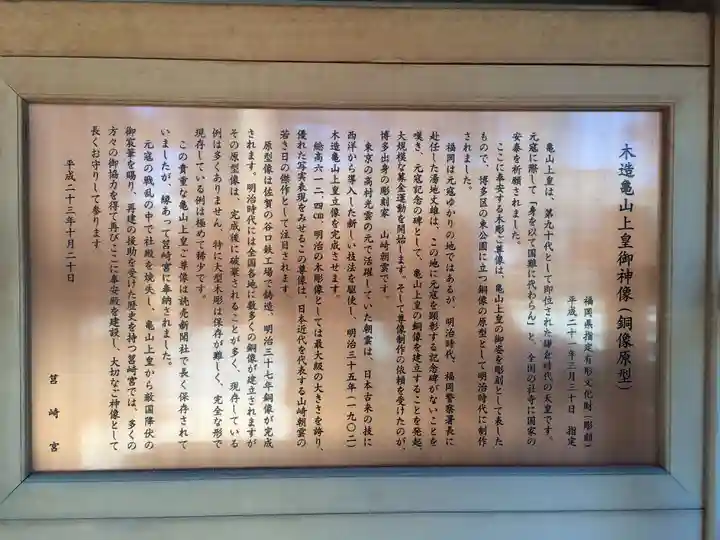 木造亀山上皇御神像（銅像原型）
福岡県指定有形文化財（彫刻）
平成二十一年三月三十日　指定
亀山上皇は、第九十代として即位された鎌倉時代の天皇です。
元寇に際して「身を以て国難に代わらん」と、全国の社寺に国家の
安泰を祈願されました。
ここに奉安する木彫ご尊像は、亀山上皇の御姿を彫刻として表した
もので、博多区の東公園に立つ銅像の原型として明治時代に制作
されました。
福岡は元寇ゆかりの地ではあるが、明治時代、福岡警察署長に
赴任した湯地丈雄は、この地に元寇を顕彰する記念碑がないことを
嘆き、元寇記念の碑として、亀山上皇の銅像を建立することを発起、
大規模な募金運動を開始します。そして尊像制作の依頼を受けたのが、
博多出身の彫刻家　山崎朝雲です。
東京の高村光雲の元で活躍していた朝雲は、日本古来の技に
西洋から導入した新しい技法を駆使し、明治三十五年（一九〇二）
木造亀山上皇立像を完成させます。
総高六一二・四㎝　明治の木彫像としては最大級の大きさを誇り、
優れた写実表現をみせるこの尊像は、日本近代を代表する山崎朝雲の
若き日の傑作として注目されます
原型像は佐賀の谷口鉄工場で鋳造、明治三十七年銅像が完成
されます。明治時代には全国各地に数多くの銅像が建立されますが
その原型像は、完成後に破棄されることが多く、現存している
例は多くありません。特に大型木彫は保存が難しく、完全な形で
現存している例は極めて稀少です。
この貴重な亀山上皇ご尊像は読売新聞社で長く保存されて
いましたが、縁あって筥崎宮に奉納されました。
元寇の戦乱の中で社殿を焼失し、亀山上皇から敵国降伏の
御宸筆を賜り、再建の援助を受けた歴史を持つ筥崎宮では、多くの
方々の御協力を得て再びここに奉安殿を建設し、大切なご神像として
長くお守りして参ります
平成二十三年十月二十日
筥崎宮